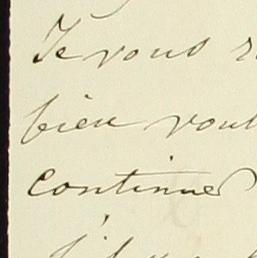 Je vous
bien voul
continuer